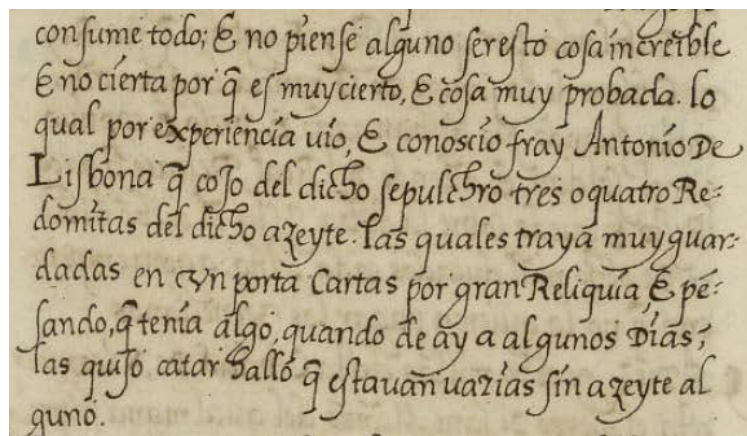 consume todo; & no piense alguno ser esto cosa increible
& no cierta por q̃ es muy cierto, & cosa muy probada. lo
qual por experiencia uio, & conoscio fray Antonio De
Lisbona q̃ cojo del dicho sepulchro tres o quatro Re=
domitas del dicho azeyte. las quales traya muy guar=
dadas en vn porta Cartas por gran Reliquia, & pē=
sando, q̃ tenia algo, quando de ay a algunos Dias;
las quiso catar hallo q̃ estauan uazias sin azeyte al
guno.